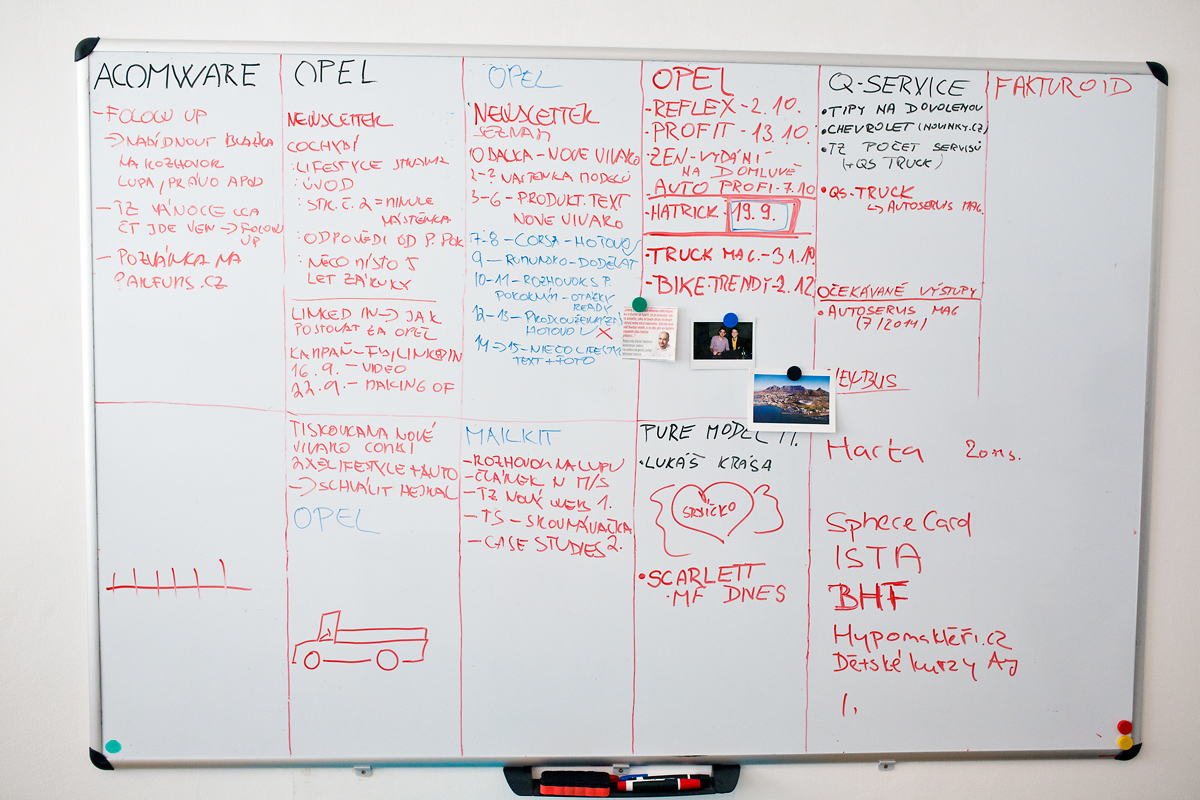 ACOMWARE
- FOLOW UP
→ NABÍDNOUT
NA ROZHOVOR
LUPA, PRÁVO APOD
- TZ VÁNOCE CCA
ČT JDE VEN → FOLOW
UP
- POZVÁNKA NA
PARFUMS.CZ
OPEL
NEWSLETTER
COCHYBÍ
: LIFESTYLE
: ÚVOD
: STR. Č. 2 = MINULE
NÁSTĚNKA
: ODPOVĚDI OD P. POK
: NĚCO MÍSTO 5
LET ZÁRUKY
LINKED IN → JAK
POSTOVAT ZA OPEL
KAMPAŇ - FB/LINKEDIN
16.9. - VIDEO
22.9. - MAKING OF
TISKOVKA NA NOVÉ
VIVARO COMBI
2X LIFESTYLE + AUTO
→ SCHVÁLIT HEJKAL
OPEL
OPEL
NEWSLETTER
SEZNAM
OBÁLKA - NOVE VIVARO
2-? NÁSTĚNKA MODELŮ
3-6 - PRODUKT. TEXT
NOVE VIVARO
7-8 - CORSA - HOTOVO
9 - RUMUNSKO - DODĚLAT
10-11 - ROZHOVOR S P.
POKORNÝM - OTÁZKY
READY
12-13 - PRODLOUŽENÁ ZÁ
HOTOVO X
14 → 15 - NĚCO LIFESTYL
TEXT + FOTO
MAILKIT
- ROZHOVOR NA LUPU
- ČLÁNEK N M/S
- TZ NOVÝ WEB 1.
- TS - SKOUMÁVAČKA
- CASE STUDIES 2.
OPEL
- REFLEX - 2.10.
- PROFIT - 13.10.
- ZEN - VYDÁNÍ
NA DOMLUVĚ
- AUTO PROFI - 7.10
- HATRICK - 19.9.
- TRUCK MAG. - 31.10
- BIKE TRENDY - 2.12.
PURE MODEL M.
• LUKÁŠ KRÁSA
SRDÍČKO
• SCARLETT
- MF DNES
Q-SERVICE
• TIPY NA DOVOLENOU
• CHEVROLET (NOVINKY.CZ)
• TZ POČET SERVISŮ
(+ QS TRUCK)
• QS-TRUCK
↳ AUTOSERVIS MAG.
OČEKÁVANÉ VÝSTUPY
• AUTOSERVIS MAG
(7/2014)
Harta 20ns.
SphereCard
ISTA
BHF
Hypomakléři.cz
Dětské kurzy Aj
1.
FAKTUROID